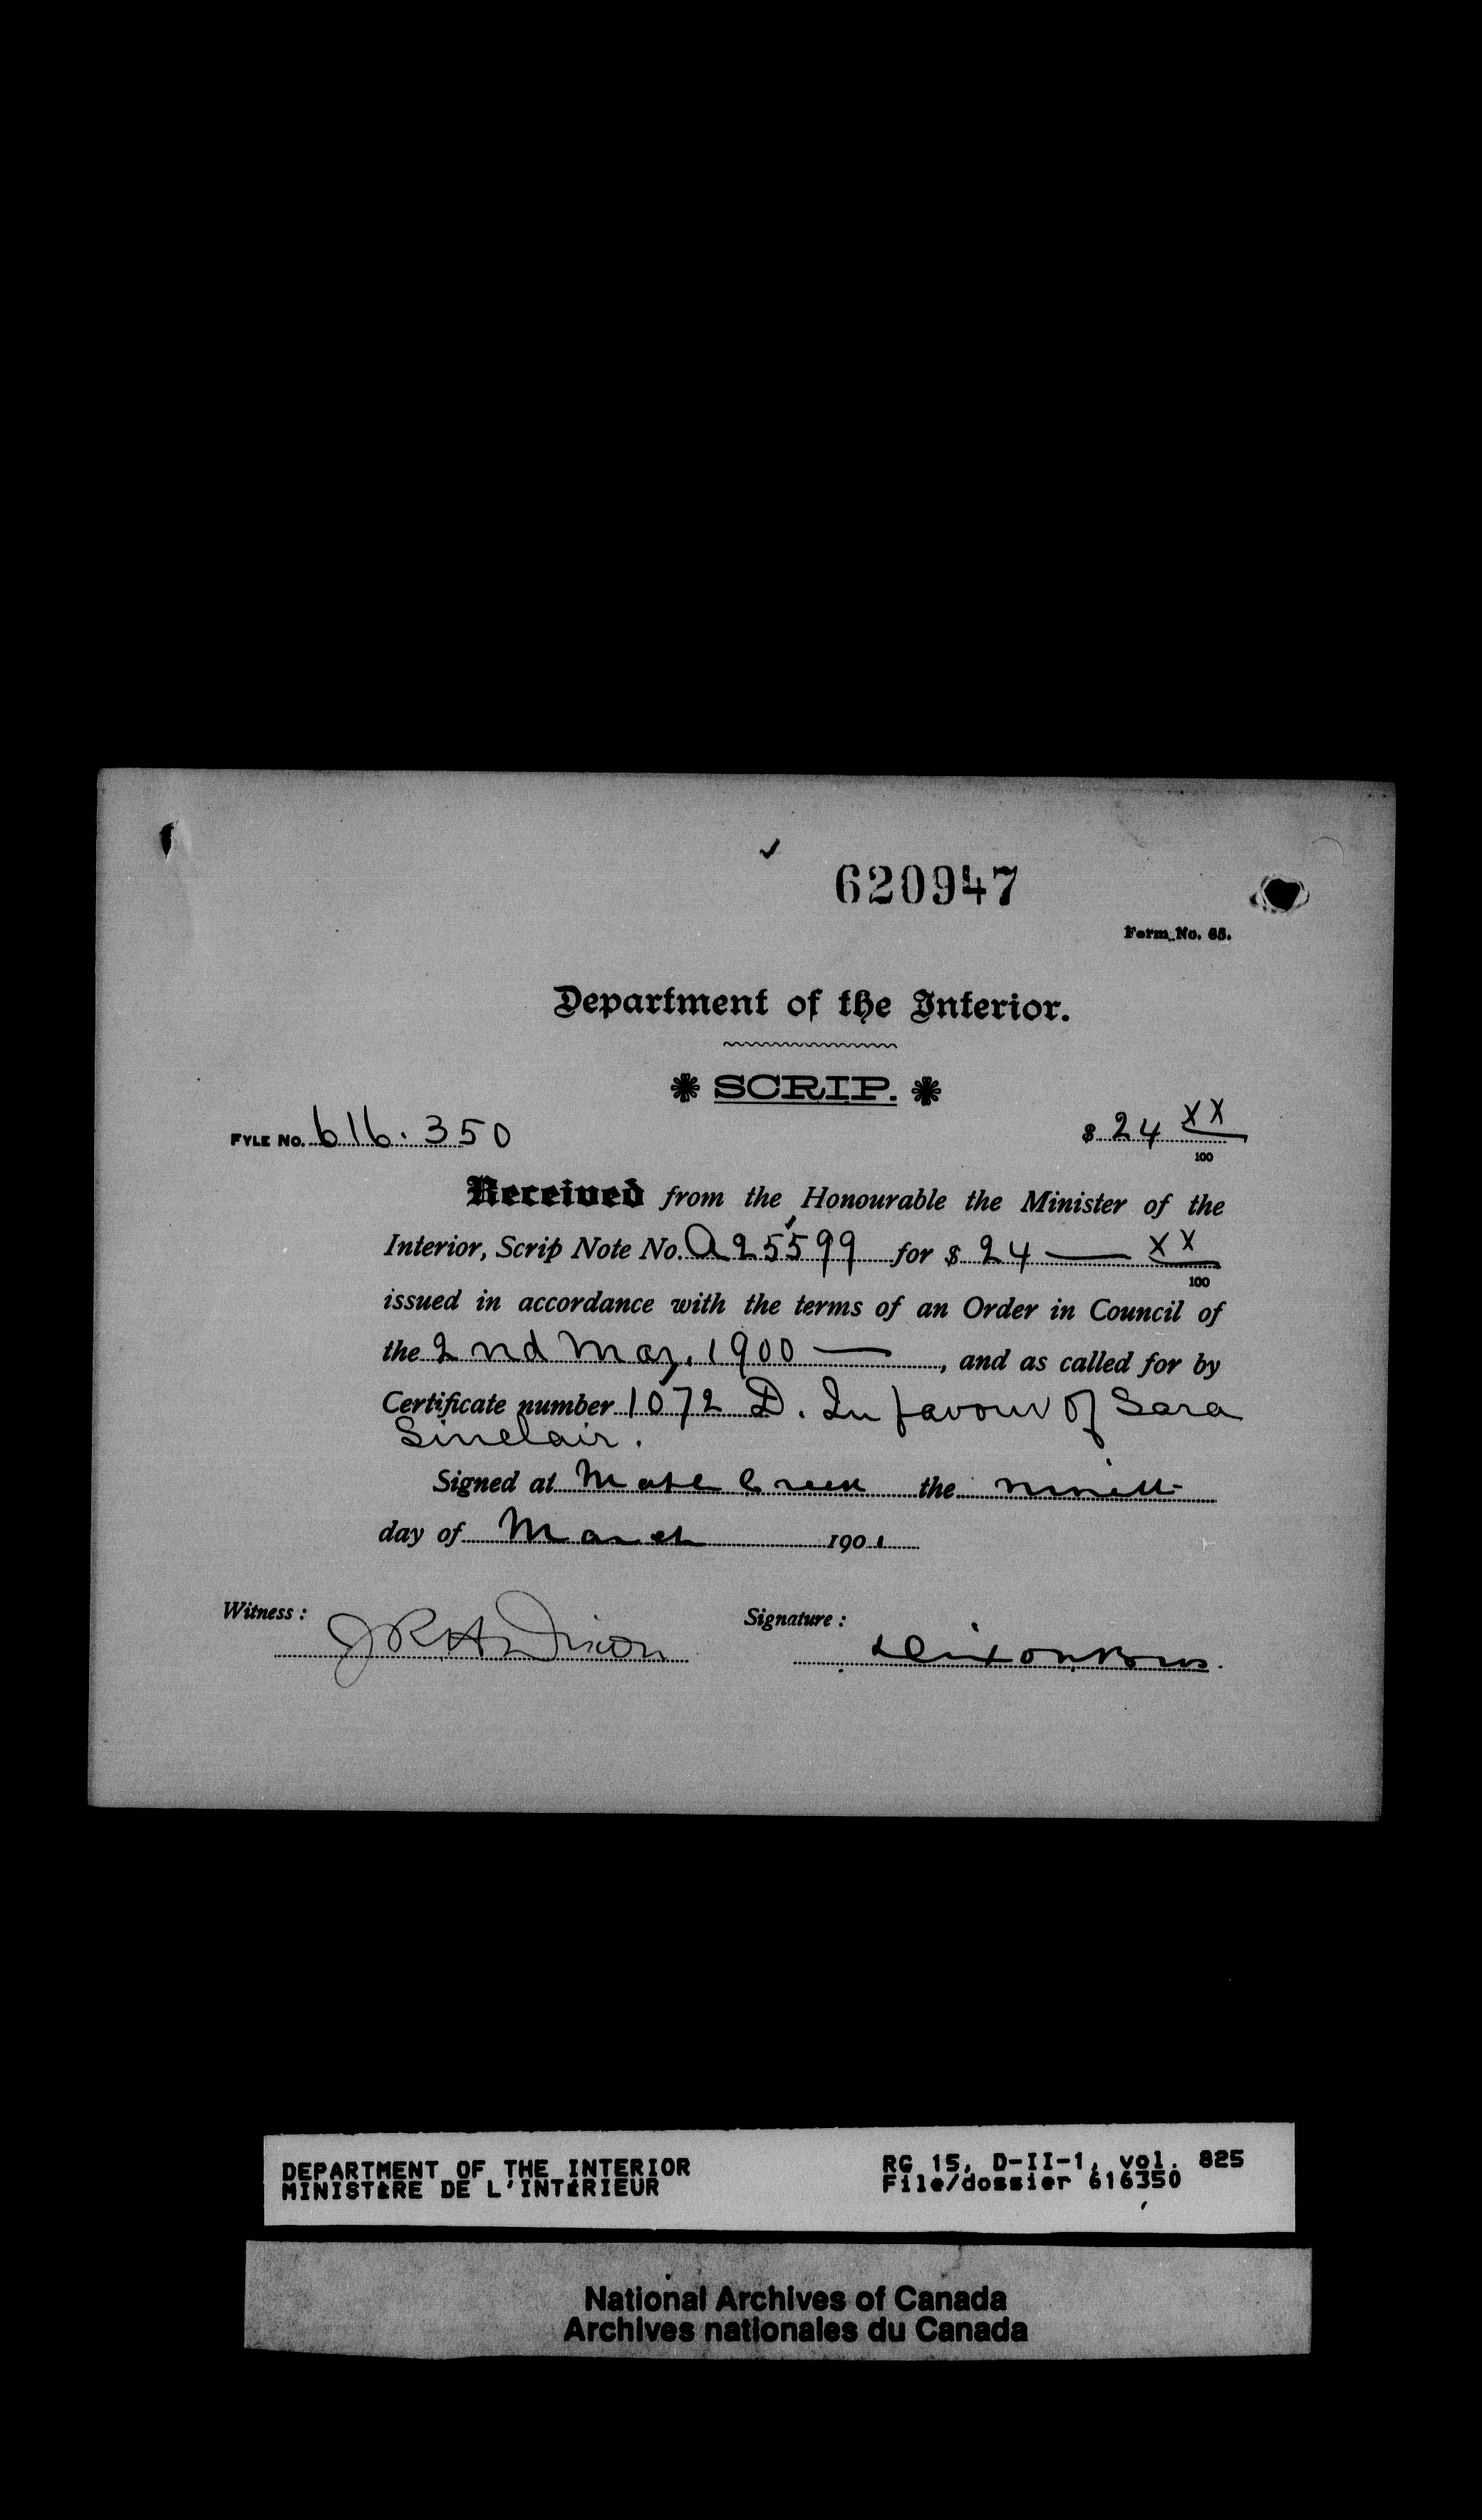 620947
Form No. 65.
Department of the Interior.
SCRIP.
FYLE No. 616.350
$ 24 XX/100
Received from the Honourable the Minister of the
Interior, Scrip Note No. A 25599 for $ 24 — XX/100
issued in accordance with the terms of an Order in Council of
the 2nd May. 1900 —, and as called for by
Certificate number 1072 D. In favour of Sara
Sinclair.
Signed at Maple Creek the ninth
day of March 1901
Witness: J R. H Dixon
Signature: Dixon Bros.
DEPARTMENT OF THE INTERIOR
MINISTÈRE DE L'INTÉRIEUR
RG 15, D-II-1, vol. 825
File/dossier 616350
National Archives of Canada
Archives nationales du Canada